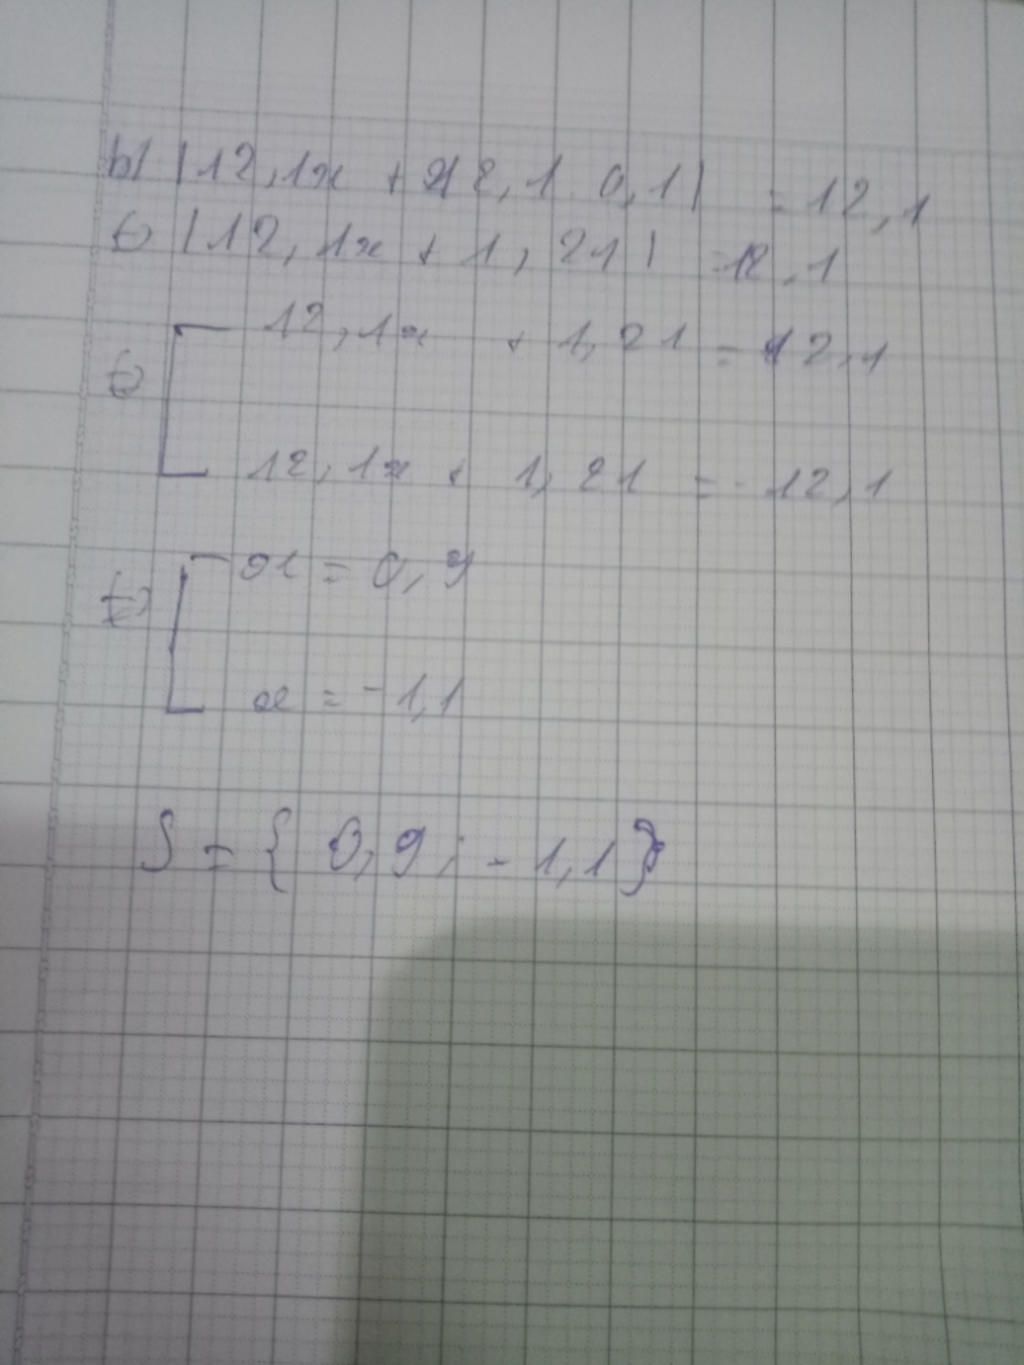 b) |12,1x + 12,1 . 0,1| = 12,1
⇔ |12,1x + 1,21| = 12,1
⇔ [ 12,1x + 1,21 = 12,1
12,1x + 1,21 = -12,1
⇔ [ x = 0,9
x = -1,1
S = { 0,9 ; -1,1}